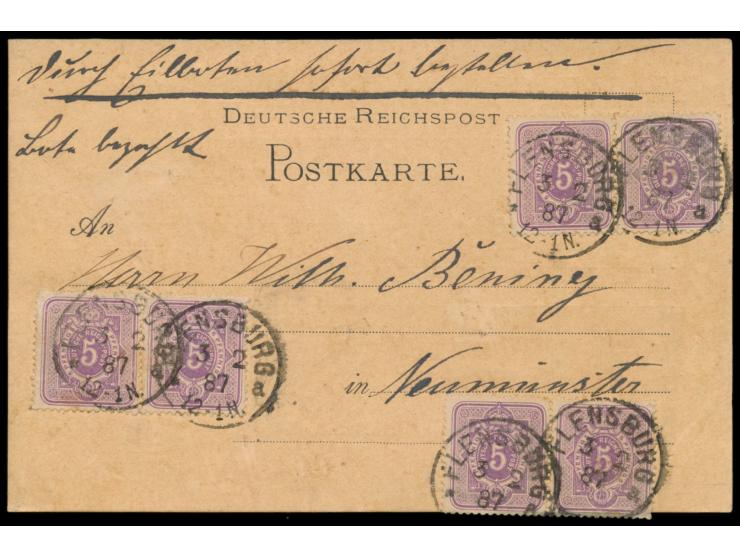 Durch Eilboten sofort bestellen.
DEUTSCHE REICHSPOST
Bote bezahlt
POSTKARTE.
5 5
FLENSBURG
3 2
87
12-1N.
a
FLENSBURG
12-1N.
a
An
Herrn Wilh. Bening
5 5
FLENSBURG
3 2
87
12-1N.
a
FLENSBURG
3 2
87
12-1N.
a
in Neumünster
5 5
FLENSBURG
3 2
87
a
FLENSBURG
3 2
87
a